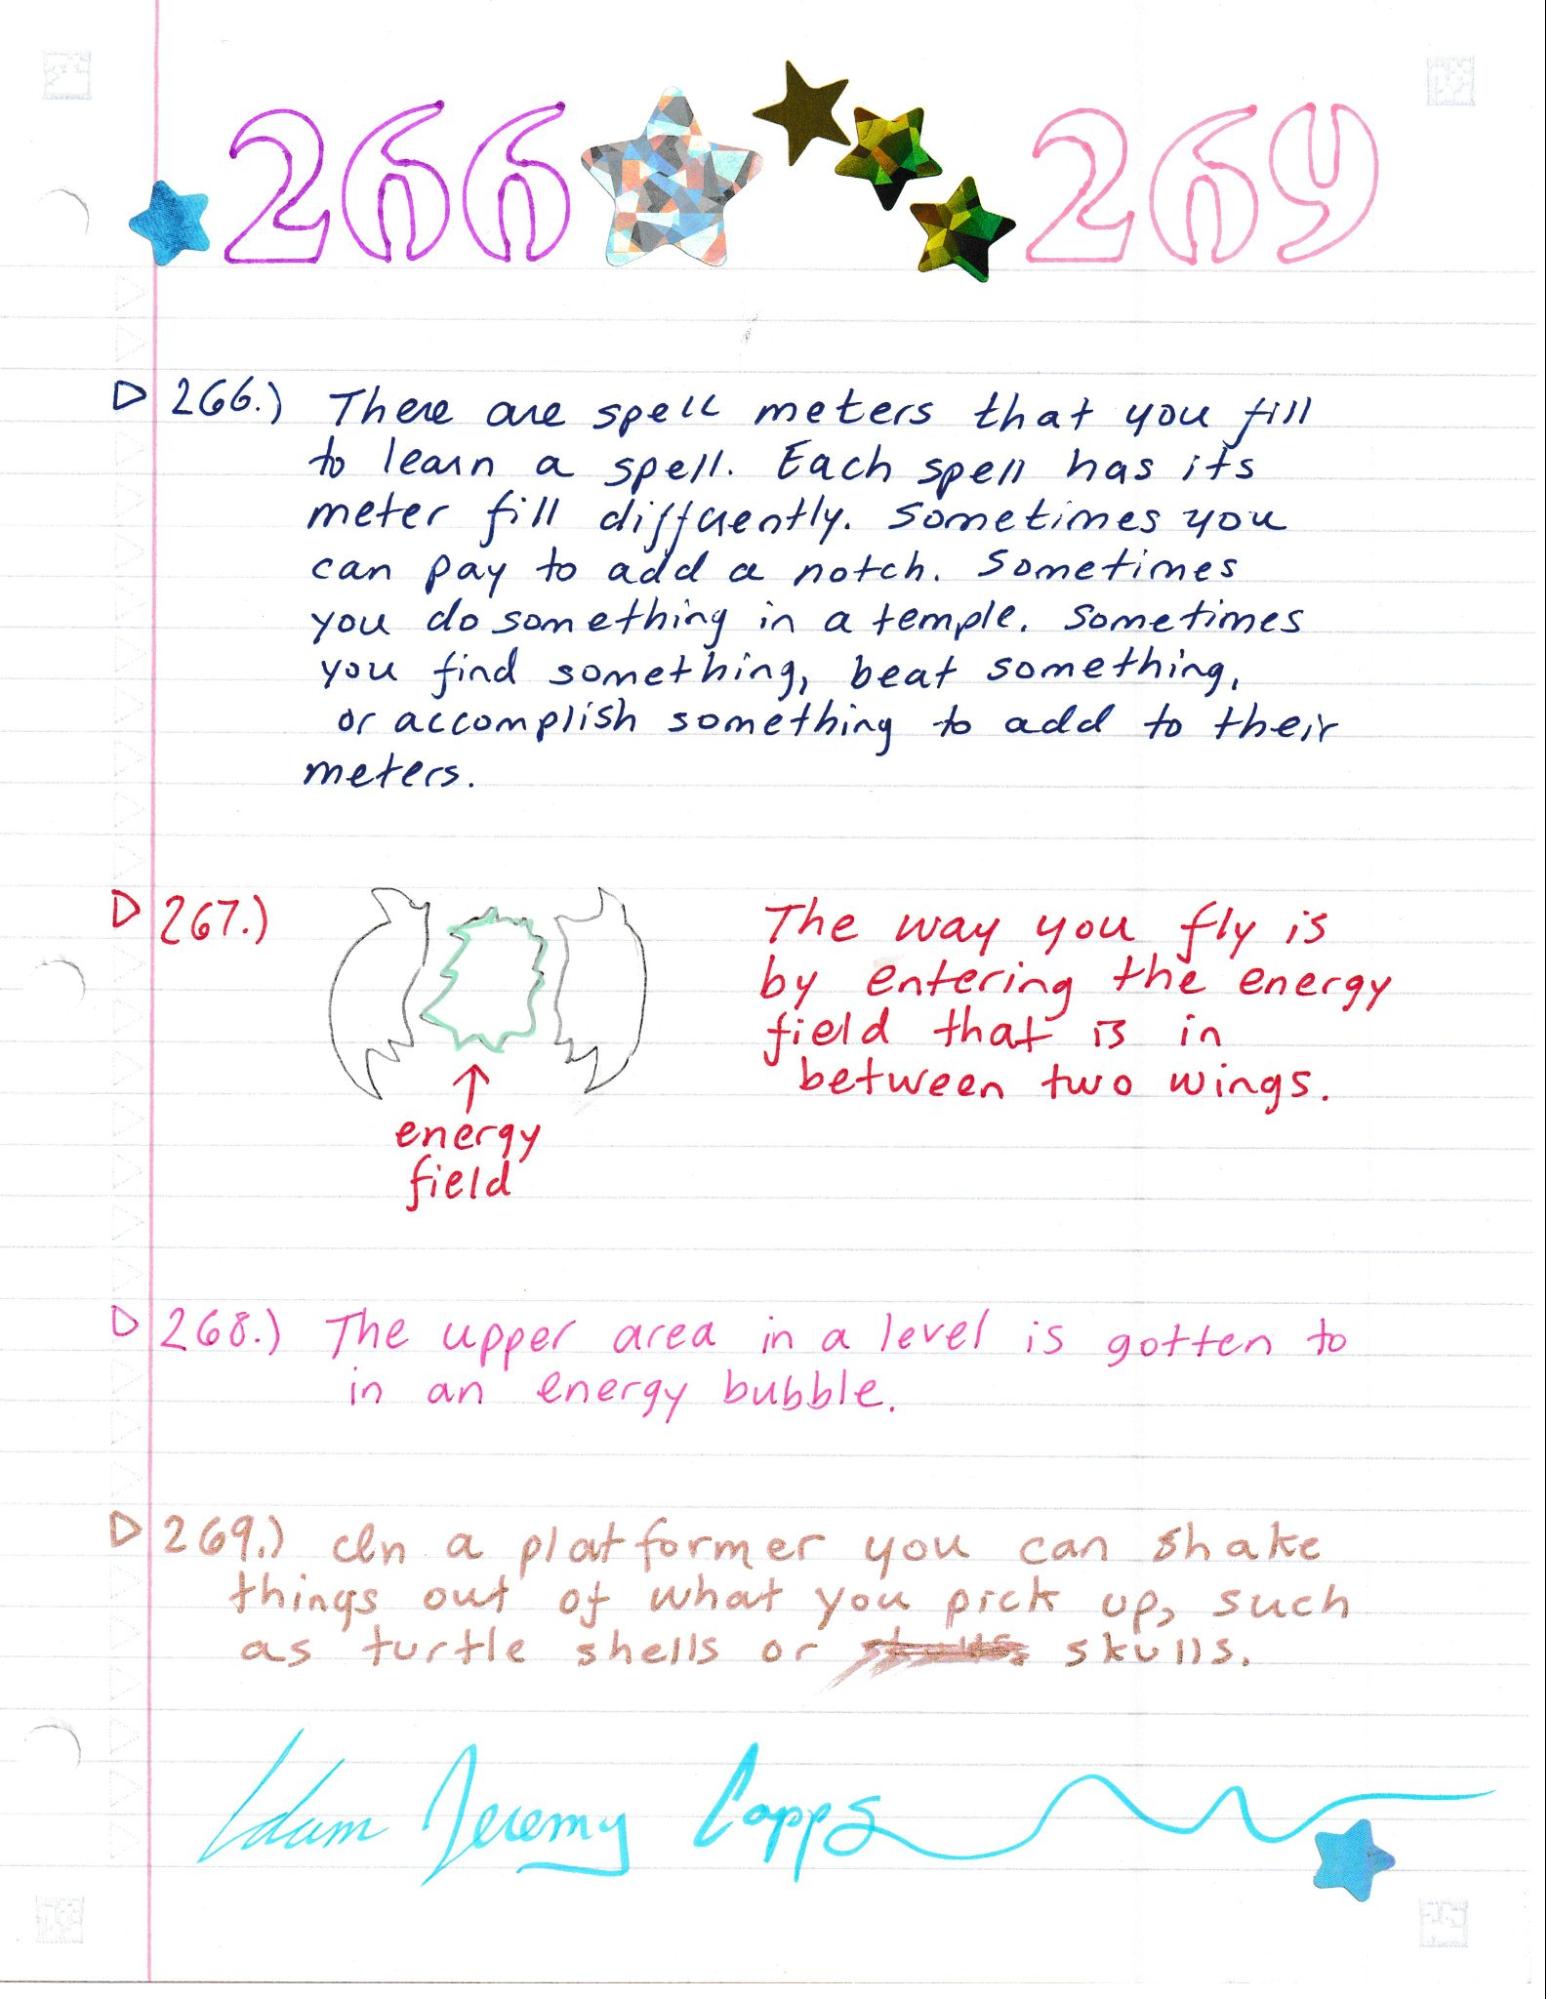 266 269
266.) There are spell meters that you fill
to learn a spell. Each spell has its
meter fill differently. Sometimes you
can pay to add a notch. Sometimes
you do something in a temple. Sometimes
you find something, beat something,
or accomplish something to add to their
meters.
267.)
The way you fly is
by entering the energy
field that is in
between two wings.
energy
field
268.) The upper area in a level is gotten to
in an energy bubble.
269.) In a platformer you can shake
things out of what you pick up, such
as turtle shells or skulls.
Adam Jeremy Capps